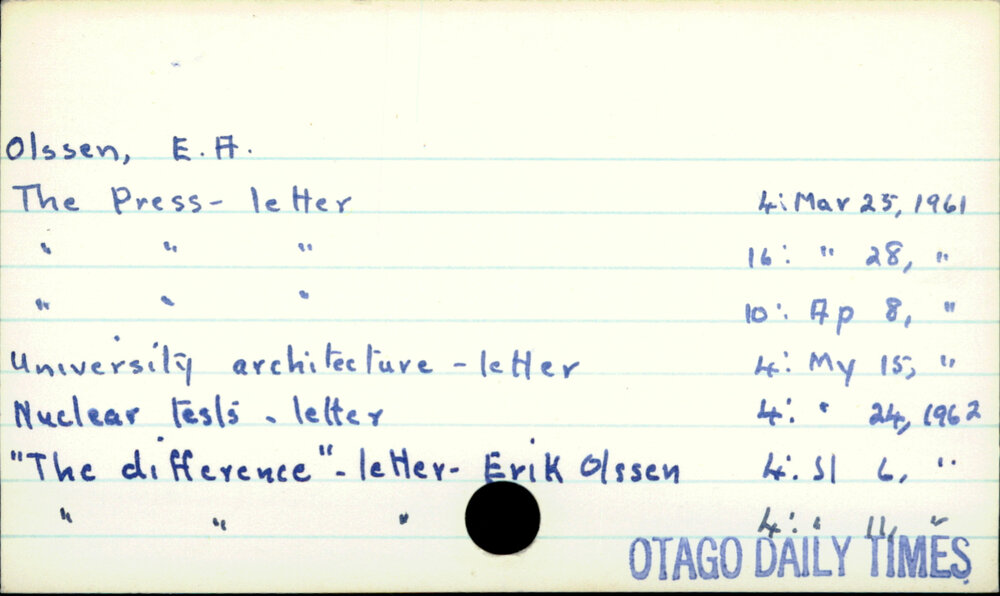 Olssen, E.A.
The Press- letter 4: Mar 25, 1961
" " " 16: " 28, "
" " " 10: Ap 8, "
University architecture - letter 4: My 15, "
Nuclear tests - letter 4: " 24, 1962
"The difference" - letter - Erik Olssen 4: Jl 6, "
" " " 4: " 11, "
OTAGO DAILY TIMES